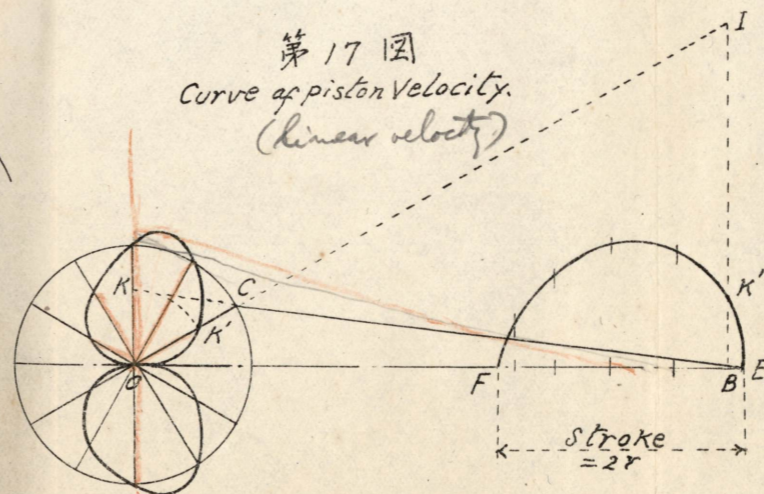 第 17 図
Curve of piston Velocity.
(linear velocity)
I
K
C
K
K'
O
F
B
E
stroke
= 2r